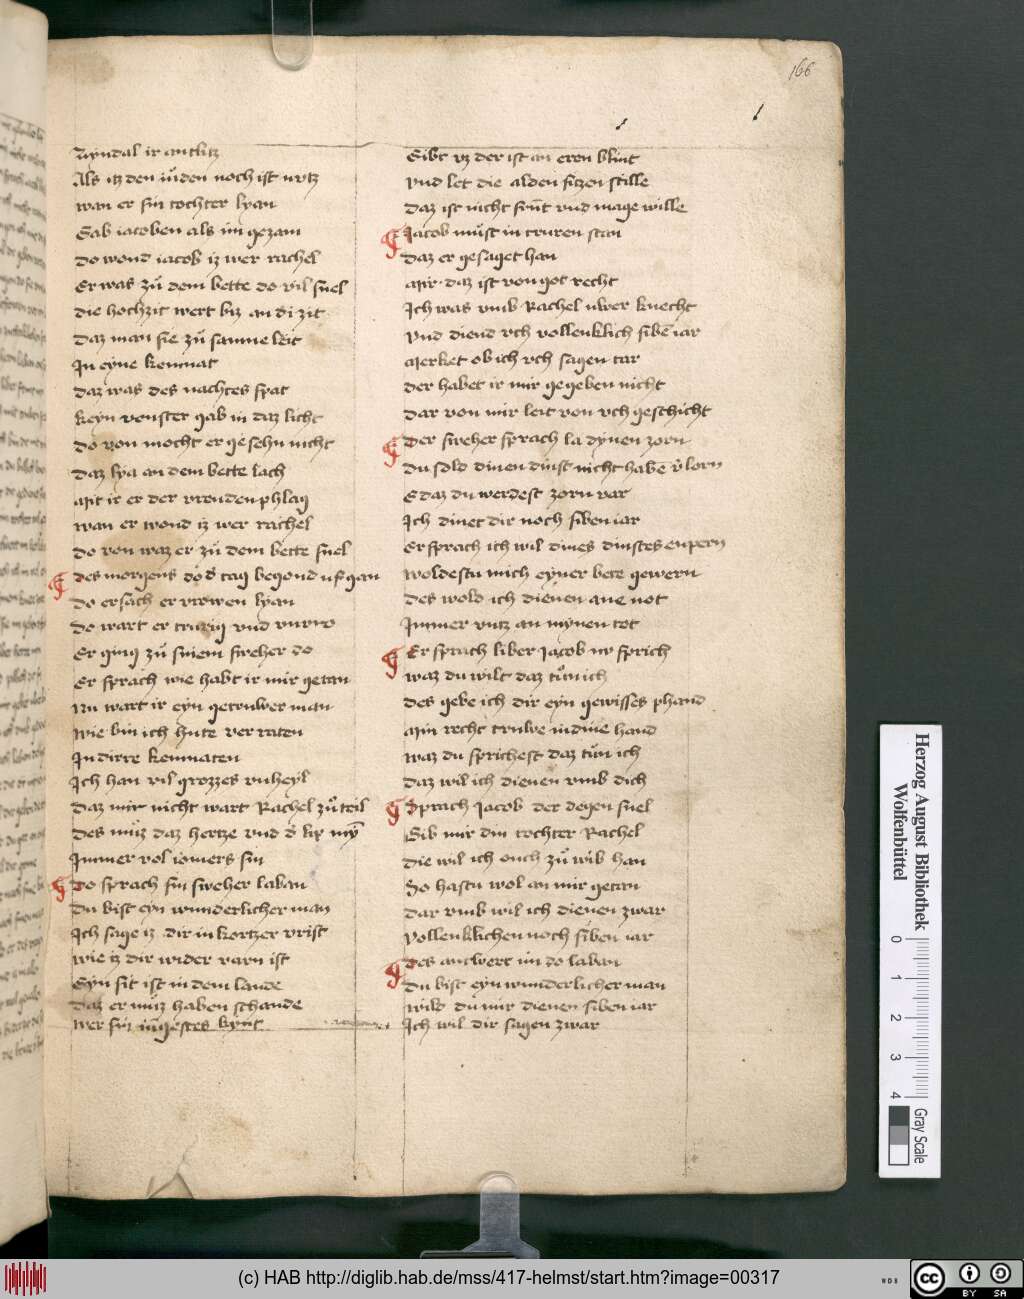 166
Zyndal ir antlitz
Als itz den iůden noch ist nutz
wan er sin tochter lyan
Gab iacoben als im gezam
do wond iacob iz wer rachel
Er was zů dem bette do vil snel
die hochzit wert biz an di zit
daz man sie zů samne leit
In eyne kemnat
daz was des nachtes spat
keyn venster gab in daz licht
do von mocht er gesehn nicht
daz lya an dem bette lach
Mit ir er der vrenden phlag
wan er wond iz wer rachel
do von waz er zů dem bette snel
des morgens do d tag begond uf gan
do ersach er vrowen lyan
do wart er trurig vnd vnvro
Er ging zů sinem sweher do
Er sprach wie habt ir mir getan
Nu wart ir eyn getruwer man
wie bin ich hute verraten
In dirre kemnaten
Ich han vil grozzes vnheyl
daz mir nicht wart Rachel zů teil
des můz daz hertze vnd d lip myn
Immer vol iomers sin
do sprach sin sweher laban
du bist eyn wunderlicher man
Ich sage iz dir in kortzer vrist
wie iz dir wider varn ist
Eyn sit ist in dem lande
daz er můz haben schande
wer sin iugestes kynt
Gibt vz der ist an eren blint
vnd let die alden sitzen stille
daz ist nicht sint vnd mage wille
Jacob můst in truren stan
daz er gesaget han
Mir daz ist von got recht
Ich was vmb Rachel uwer knecht
vnd diend vch vollenklich siben iar
Merket ob ich vch sagen tar
der habet ir mir gegeben nicht
dar von mir leit von vch geschicht
der sweher sprach la dynen zorn
du sold dinen dinst nicht habe vlorn
E daz du werdest zorn var
Ich dinet dir noch siben iar
Er sprach ich wil dines dinstes enpern
woldestu mich eyner bete gewern
des wold ich dienen ane not
Immer vntz an mynen tot
Er sprach liber Jacob nv sprich
waz du wilt daz tůn ich
des gebe ich dir eyn gewisses phand
Min recht truwe in dine hand
waz du sprichest daz tůn ich
daz wil ich dienen vmb dich
Sprach Jacob der degen snel
Gib mir din tochter Rachel
die wil ich ouch zů wib han
So hastu wol an mir getan
dar vmb wil ich dienen zwar
vollenklichen noch siben iar
des antwert im do laban
du bist eyn wunderlicher man
wild du mir dienen siben iar
Ich wil dir sagen zwar
Herzog August Bibliothek
Wolfenbüttel
0 1 2 3 4
Gray Scale
(c) HAB http://diglib.hab.de/mss/417-helmst/start.htm?image=00317
WDB
cc BY SA